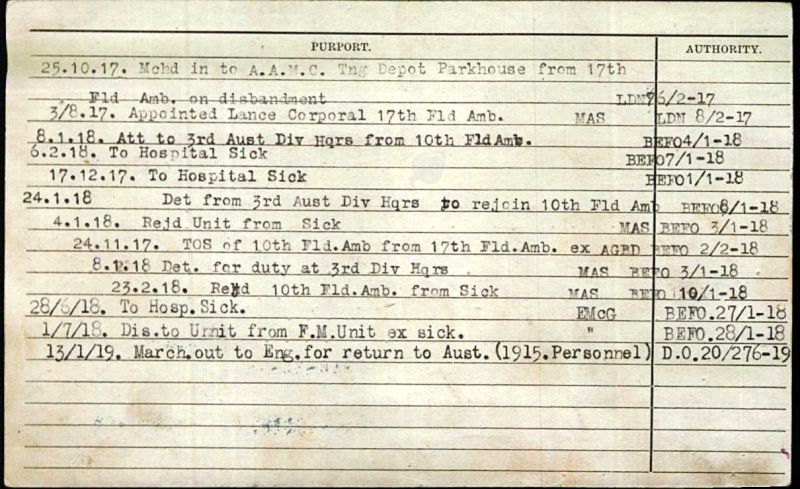 PURPORT. AUTHORITY.
25.10.17. Mchd in to A.A.M.C. Tng Depot Parkhouse from 17th
Fld Amb. on disbandment LDN 76/2-17
3/8.17. Appointed Lance Corporal 17th Fld Amb. MAS LDN 8/2-17
8.1.18. Att to 3rd Aust Div Hqrs from 10th FldAmb. BEFO4/1-18
6.2.18. To Hospital Sick BEFO7/1-18
17.12.17. To Hospital Sick BEFO1/1-18
24.1.18 Det from 3rd Aust Div Hqrs to rejoin 10th Fld Amb BEFO6/1-18
4.1.18. Rejd Unit from Sick MAS BEFO 3/1-18
24.11.17. TOS of 10th Fld.Amb from 17th Fld.Amb. ex AGBD BEFO 2/2-18
8.1.18 Det. for duty at 3rd Div Hqrs MAS BEFO 3/1-18
23.2.18. Rejd 10th Fld.Amb. from Sick MAS BEFO 10/1-18
28/6/18. To Hosp.Sick. EMcG BEFO.27/1-18
1/7/18. Dis.to Unit from F.M.Unit ex sick. " BEFO.28/1-18
13/1/19. March.out to Eng.for return to Aust.(1915.Personnel) D.O.20/276-19